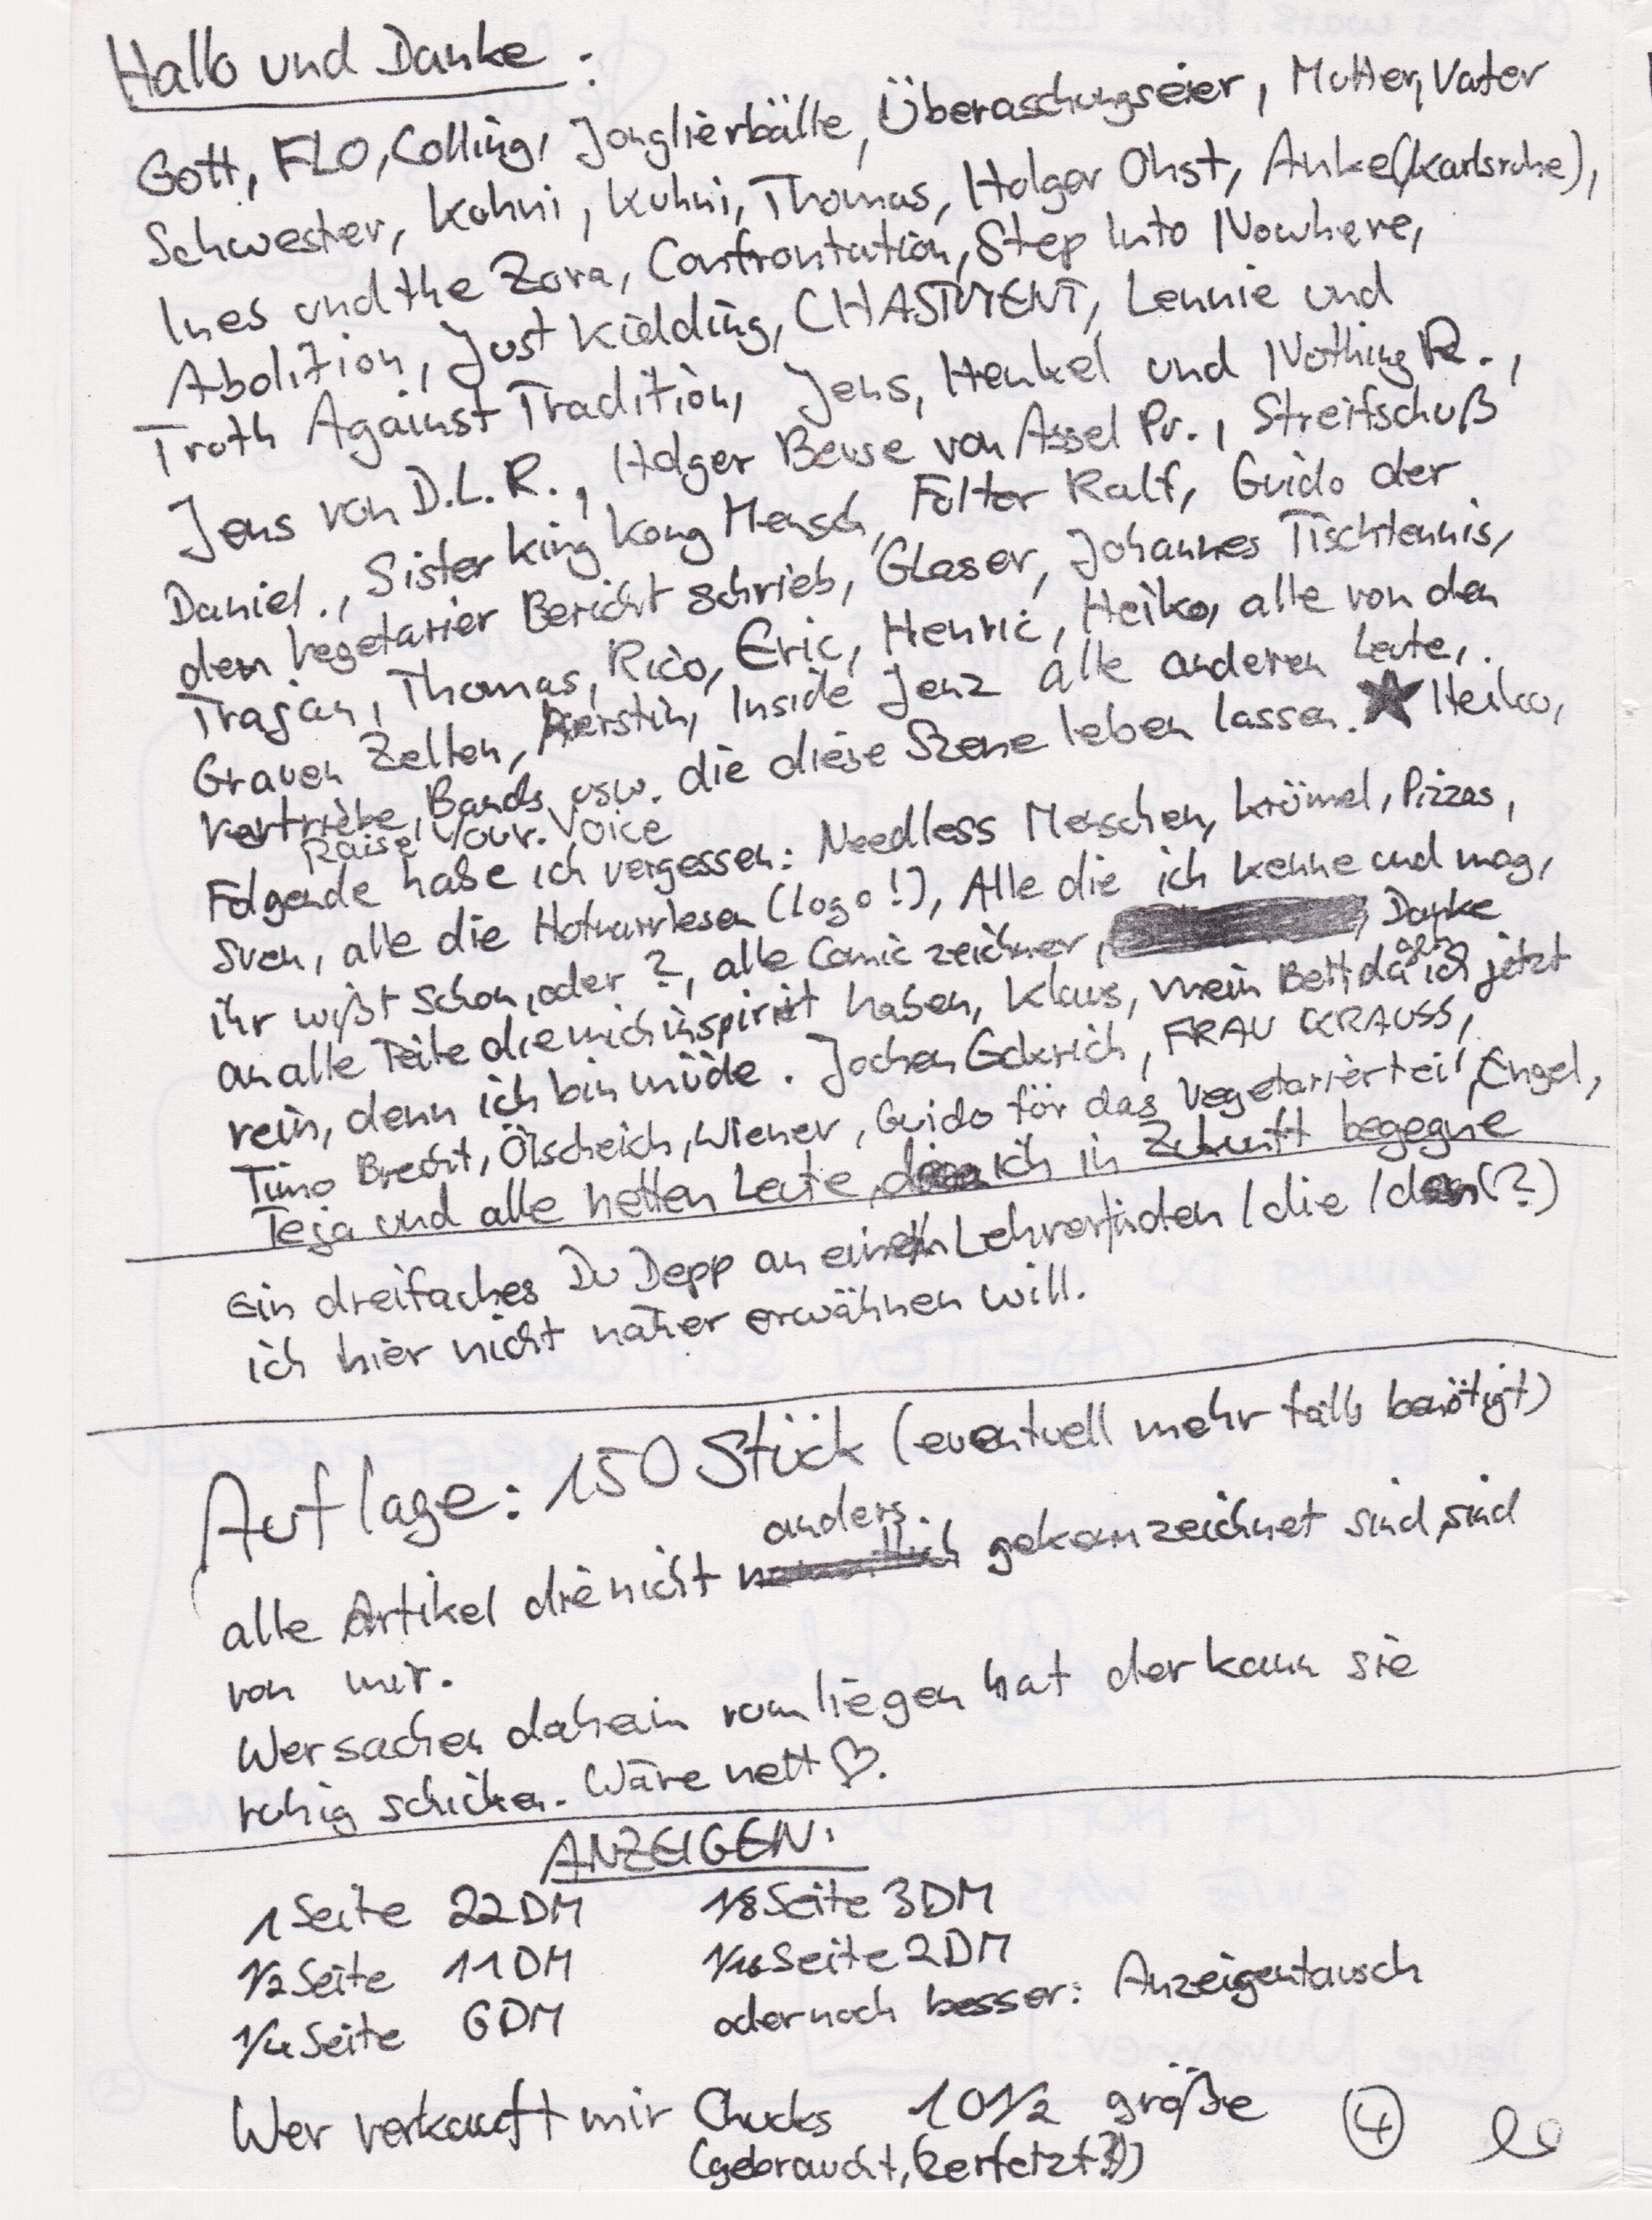 Hallo und Danke :
Gott, FLO, Colling, Jonglierbälle, Überaschungseier, Mutter, Vater
Schwester, Kohni, Kuhni, Thomas, Holger Ohst, Anke (Karlsruhe),
Ines und the Zora, Confrontation, Step Into Nowhere,
Abolition, Just Kidding, CHASTMENT, Lennie und
Truth Against Tradition, Jens, Henkel und Nothing R.,
Jens von D.L.R., Holger Beuse von Assel Pr., Streifschuß
Daniel., Sister King Kong Mensch, Folter Ralf, Guido der
den Vegetarier Bericht schrieb, Glaser, Johannes Tischtennis,
Trajan, Thomas, Rico, Eric, Henric, Heiko, alle von den
Grauen Zellen, Kerstin, Inside Jenz alle anderen Leute,
Vertriebe, Bands usw. die diese Szene leben lassen. ★ Heiko,
Raise Your Voice
Folgende habe ich vergessen: Needless Menschen, Krümel, Pizzas,
Sven, alle die Hotnarrlesen (logo!), Alle die ich kenne und mag,
ihr wißt schon, oder ?, alle Comic zeichner, Danke
an alle Teite die mich inspiriet haben, Klaus, mein Bett, da geh ich jetzt
rein, denn ich bin müde. Jochen Gckrich, FRAU KRAUSS,
Timo Brecht, Ölscheich, Wiener, Guido för das Vegetarierteil, Engel,
Teja und alle netten Leute, die ich in Zukunft begegne
Ein dreifaches Du Depp an einen Lehrer/inden /die /den (?)
ich hier nicht näher erwähnen will.
Auflage: 150 Stück (eventuell mehr falls benötigt)
anders.
alle Artikel die nicht gekenzeichnet sind, sind
von mir.
Wer sachen daheim rumliegen hat der kann sie
ruhig schicken. Wäre nett ♡.
ANZEIGEN:
1 Seite 22 DM 1/8 Seite 3 DM
1/2 Seite 11 DM 1/16 Seite 2 DM
1/4 Seite 6 DM oder noch besser: Anzeigentausch
Wer verkauft mir Chucks 10 1/2 größe
(gebraucht, (zerfetzt?))
4